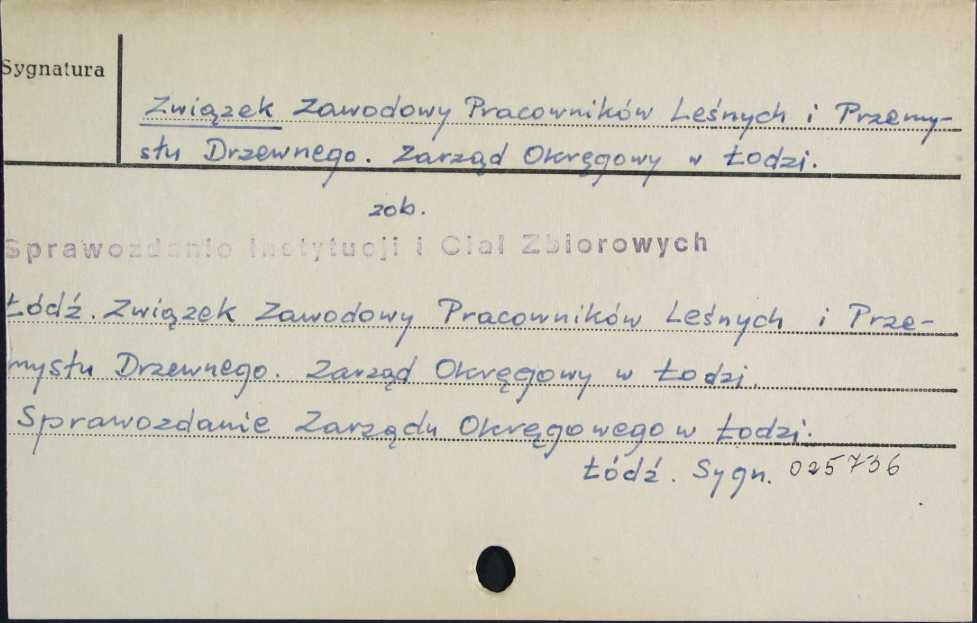 Sygnatura
Związek Zawodowy Pracowników Leśnych i Przemy-
słu Drzewnego. Zarząd Okręgowy w Łodzi.
zob.
Sprawozdanie Instytucji i Ciał Zbiorowych
Łódź. Związek Zawodowy Pracowników Leśnych i Prze-
mysłu Drzewnego. Zarząd Okręgowy w Łodzi.
Sprawozdanie Zarządu Okręgowego w Łodzi.
Łódź. Sygn. 025736